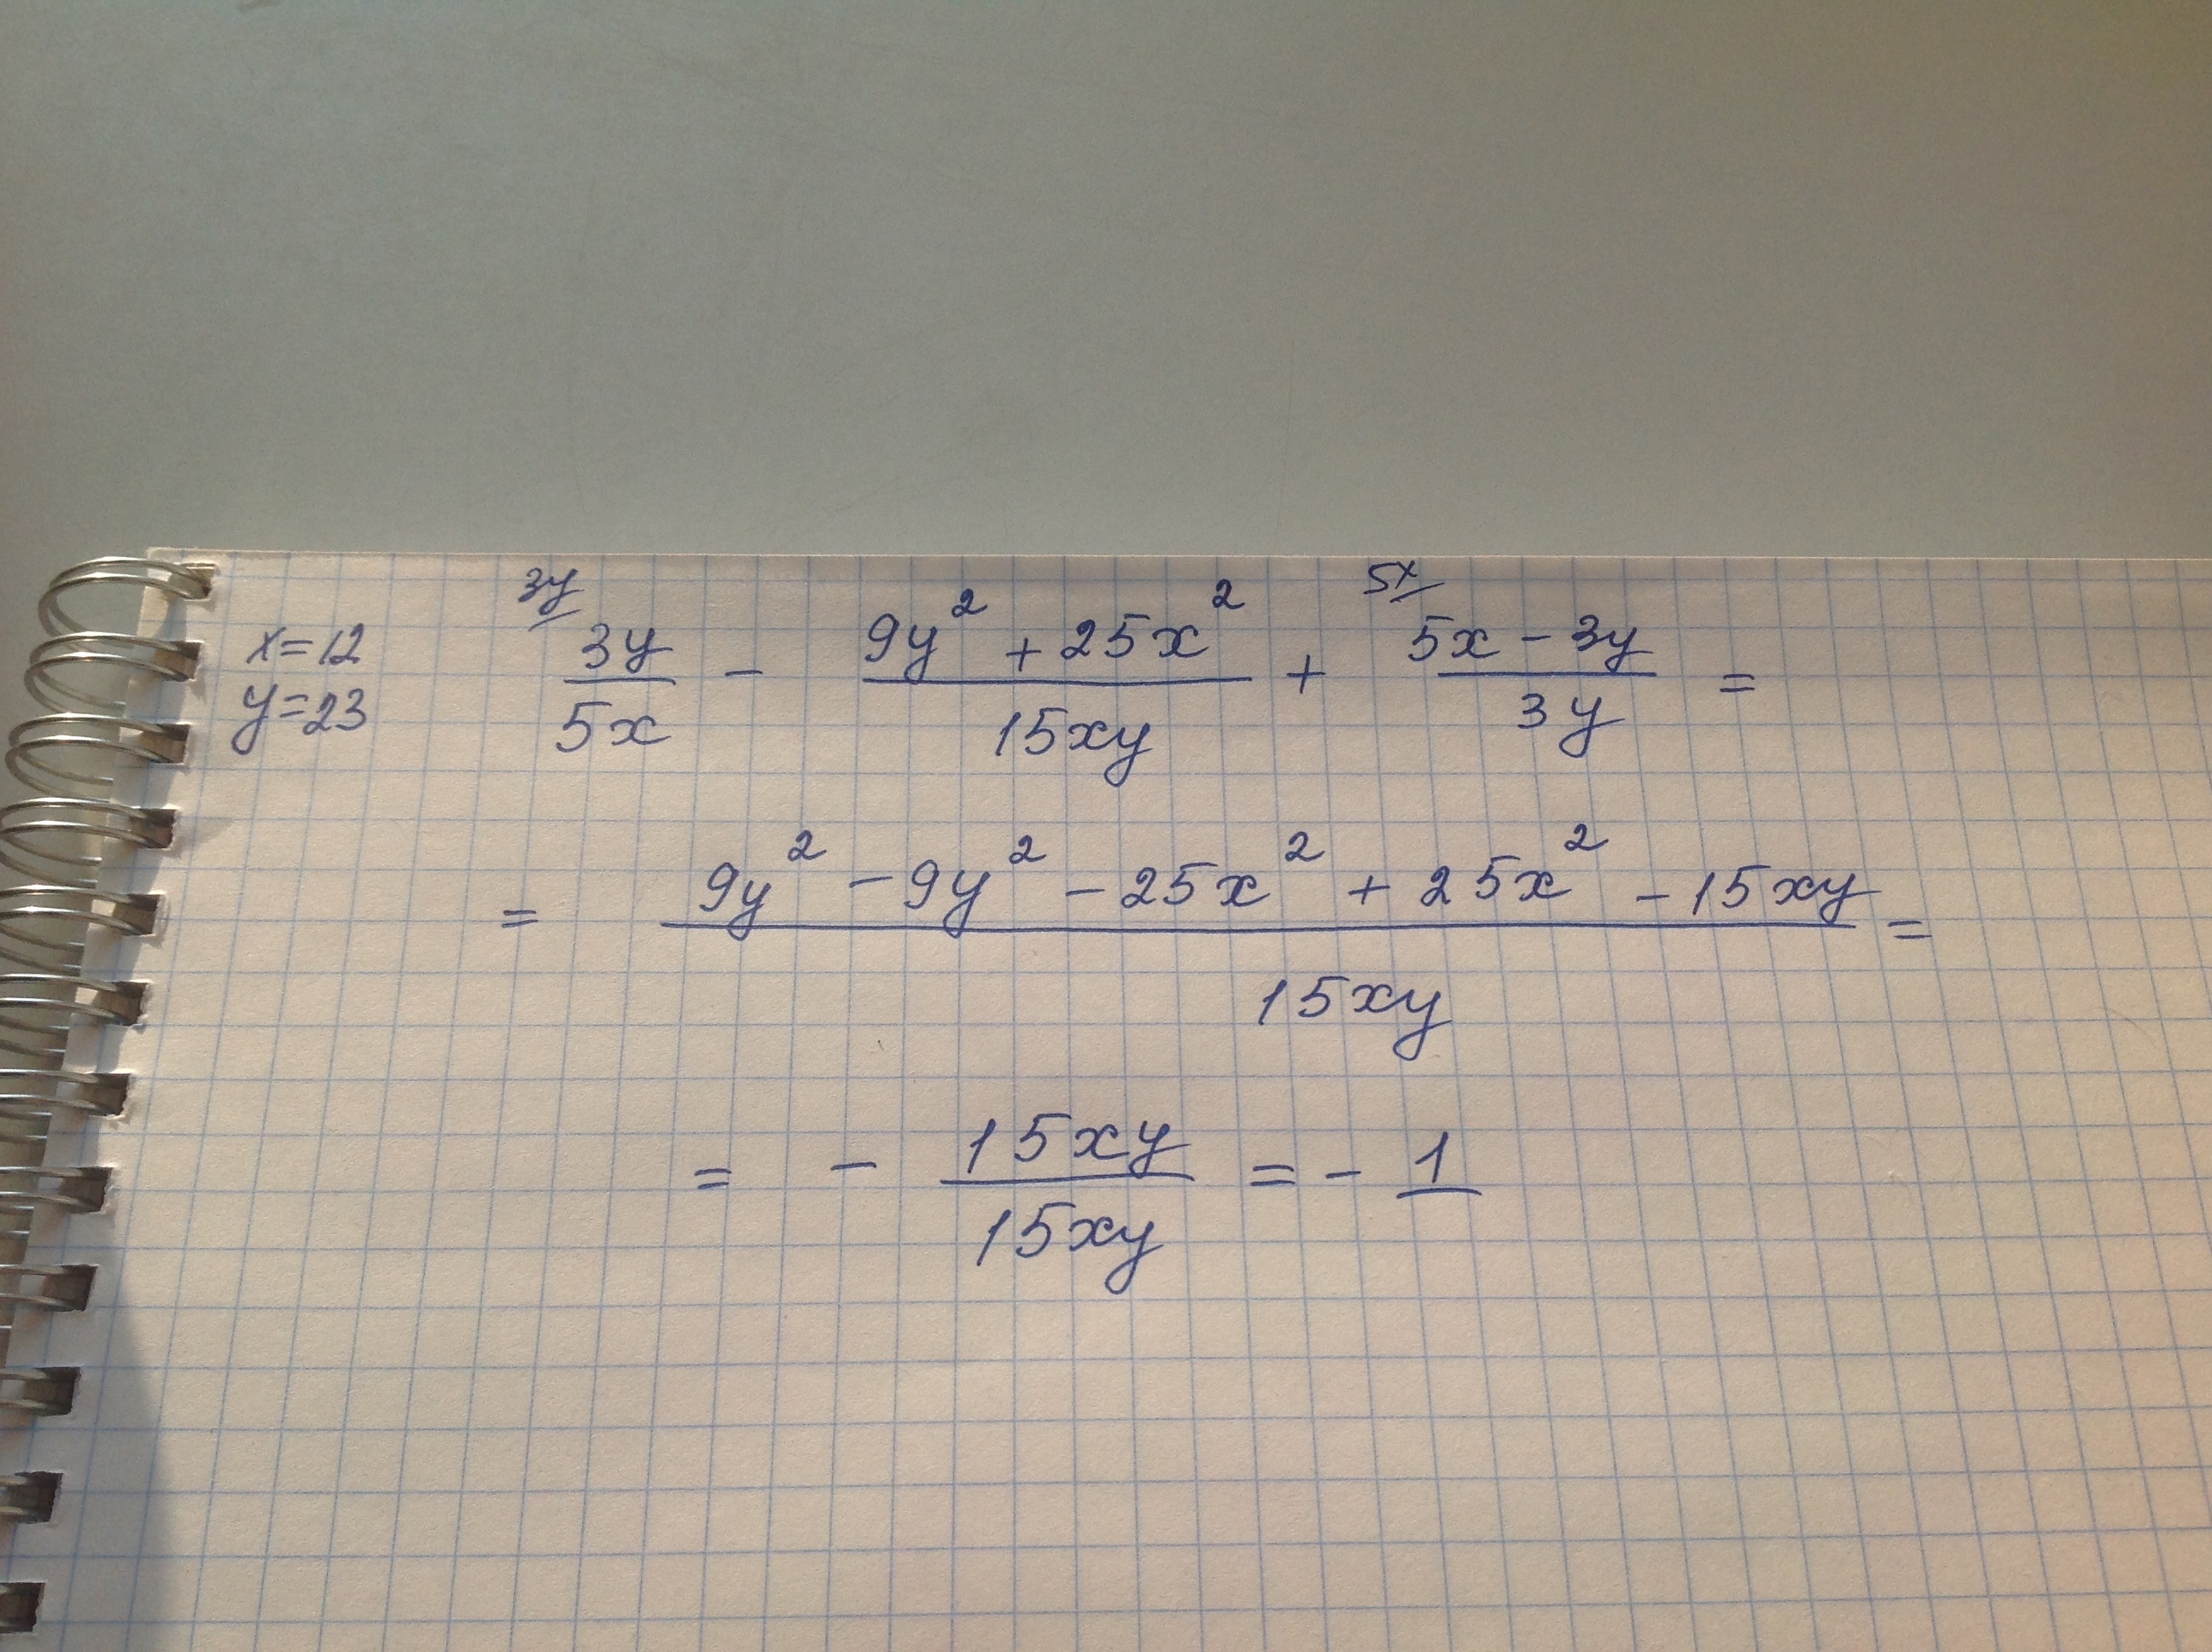 x=12
y=23
3y/ 3y/5x - (9y² + 25x²)/15xy + 5x/ (5x - 3y)/3y =
= (9y² - 9y² - 25x² + 25x² - 15xy)/15xy =
= - 15xy/15xy = - 1